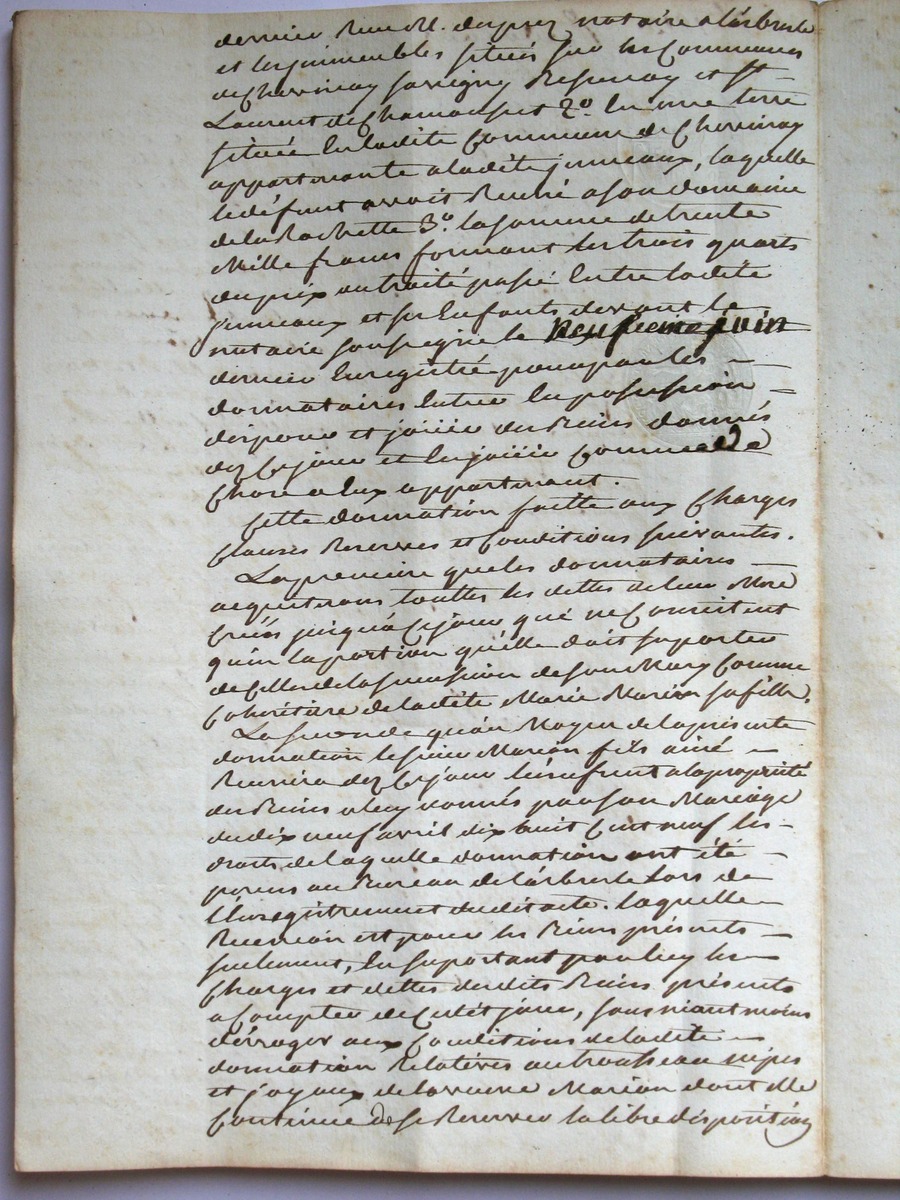 dernier Reçu M. duprez notaire a l'arbresle
et les immeubles situés sur les Communes
de Chevinay savigny Bessenay et St
Laurent de Chamousset 2o. En une terre
située En ladite Commune de Chevinay
appartenante a ladite jumeaux, laquelle
le défunt avoit Reuni a son domaine
de la Rochette 3o. la somme de trente
Mille francs formant les trois quarts
du prix du traité passé Entre ladite
jumeaux et ses Enfants devant le
notaire soussigné le juin
dernier Enregistré pour par les
donnataires Entrer En possession
disposer et jouir des Biens donnés
dez Ce jour et En jouir Comme de
Chose a Eux appartenant.
Cette donnation faitte aux Charges
Clauses Reserves et Conditions suivantes.
La premiere que les donnataires
acquitteront touttes les dettes de leur Mere
Créés jusqu'a Ce jour qui ne Consistent
qu'en la portion qu'elle doit suporter
de Celles de la succession de son Mary Comme
Cohéritière de ladite Marie Marion sa fille.
La seconde qu'au Moyen de la présente
donnation le sieur Marion fils ainé
Reunira dez Ce jour l'usufruit a la propriété
des Biens a luy donnés par son Mariage
du dix neuf avril dix huit Cent neuf les
droits de laquelle donnation ont été
perçus au Bureau de l'arbresle Lors de
l'Enregistrement dudit acte. laquelle
Reunion est pour les Biens présents
seulement, En suportant par luy les
Charges et dettes desdits Biens présents
a Compter de Cedit jour, sans néantmoins
déroger aux Conditions de ladite
donnation Relatives au trousseau nipes
et joyaux de la veuve Marion dont elle
Continue de se Reserver la libre disposition